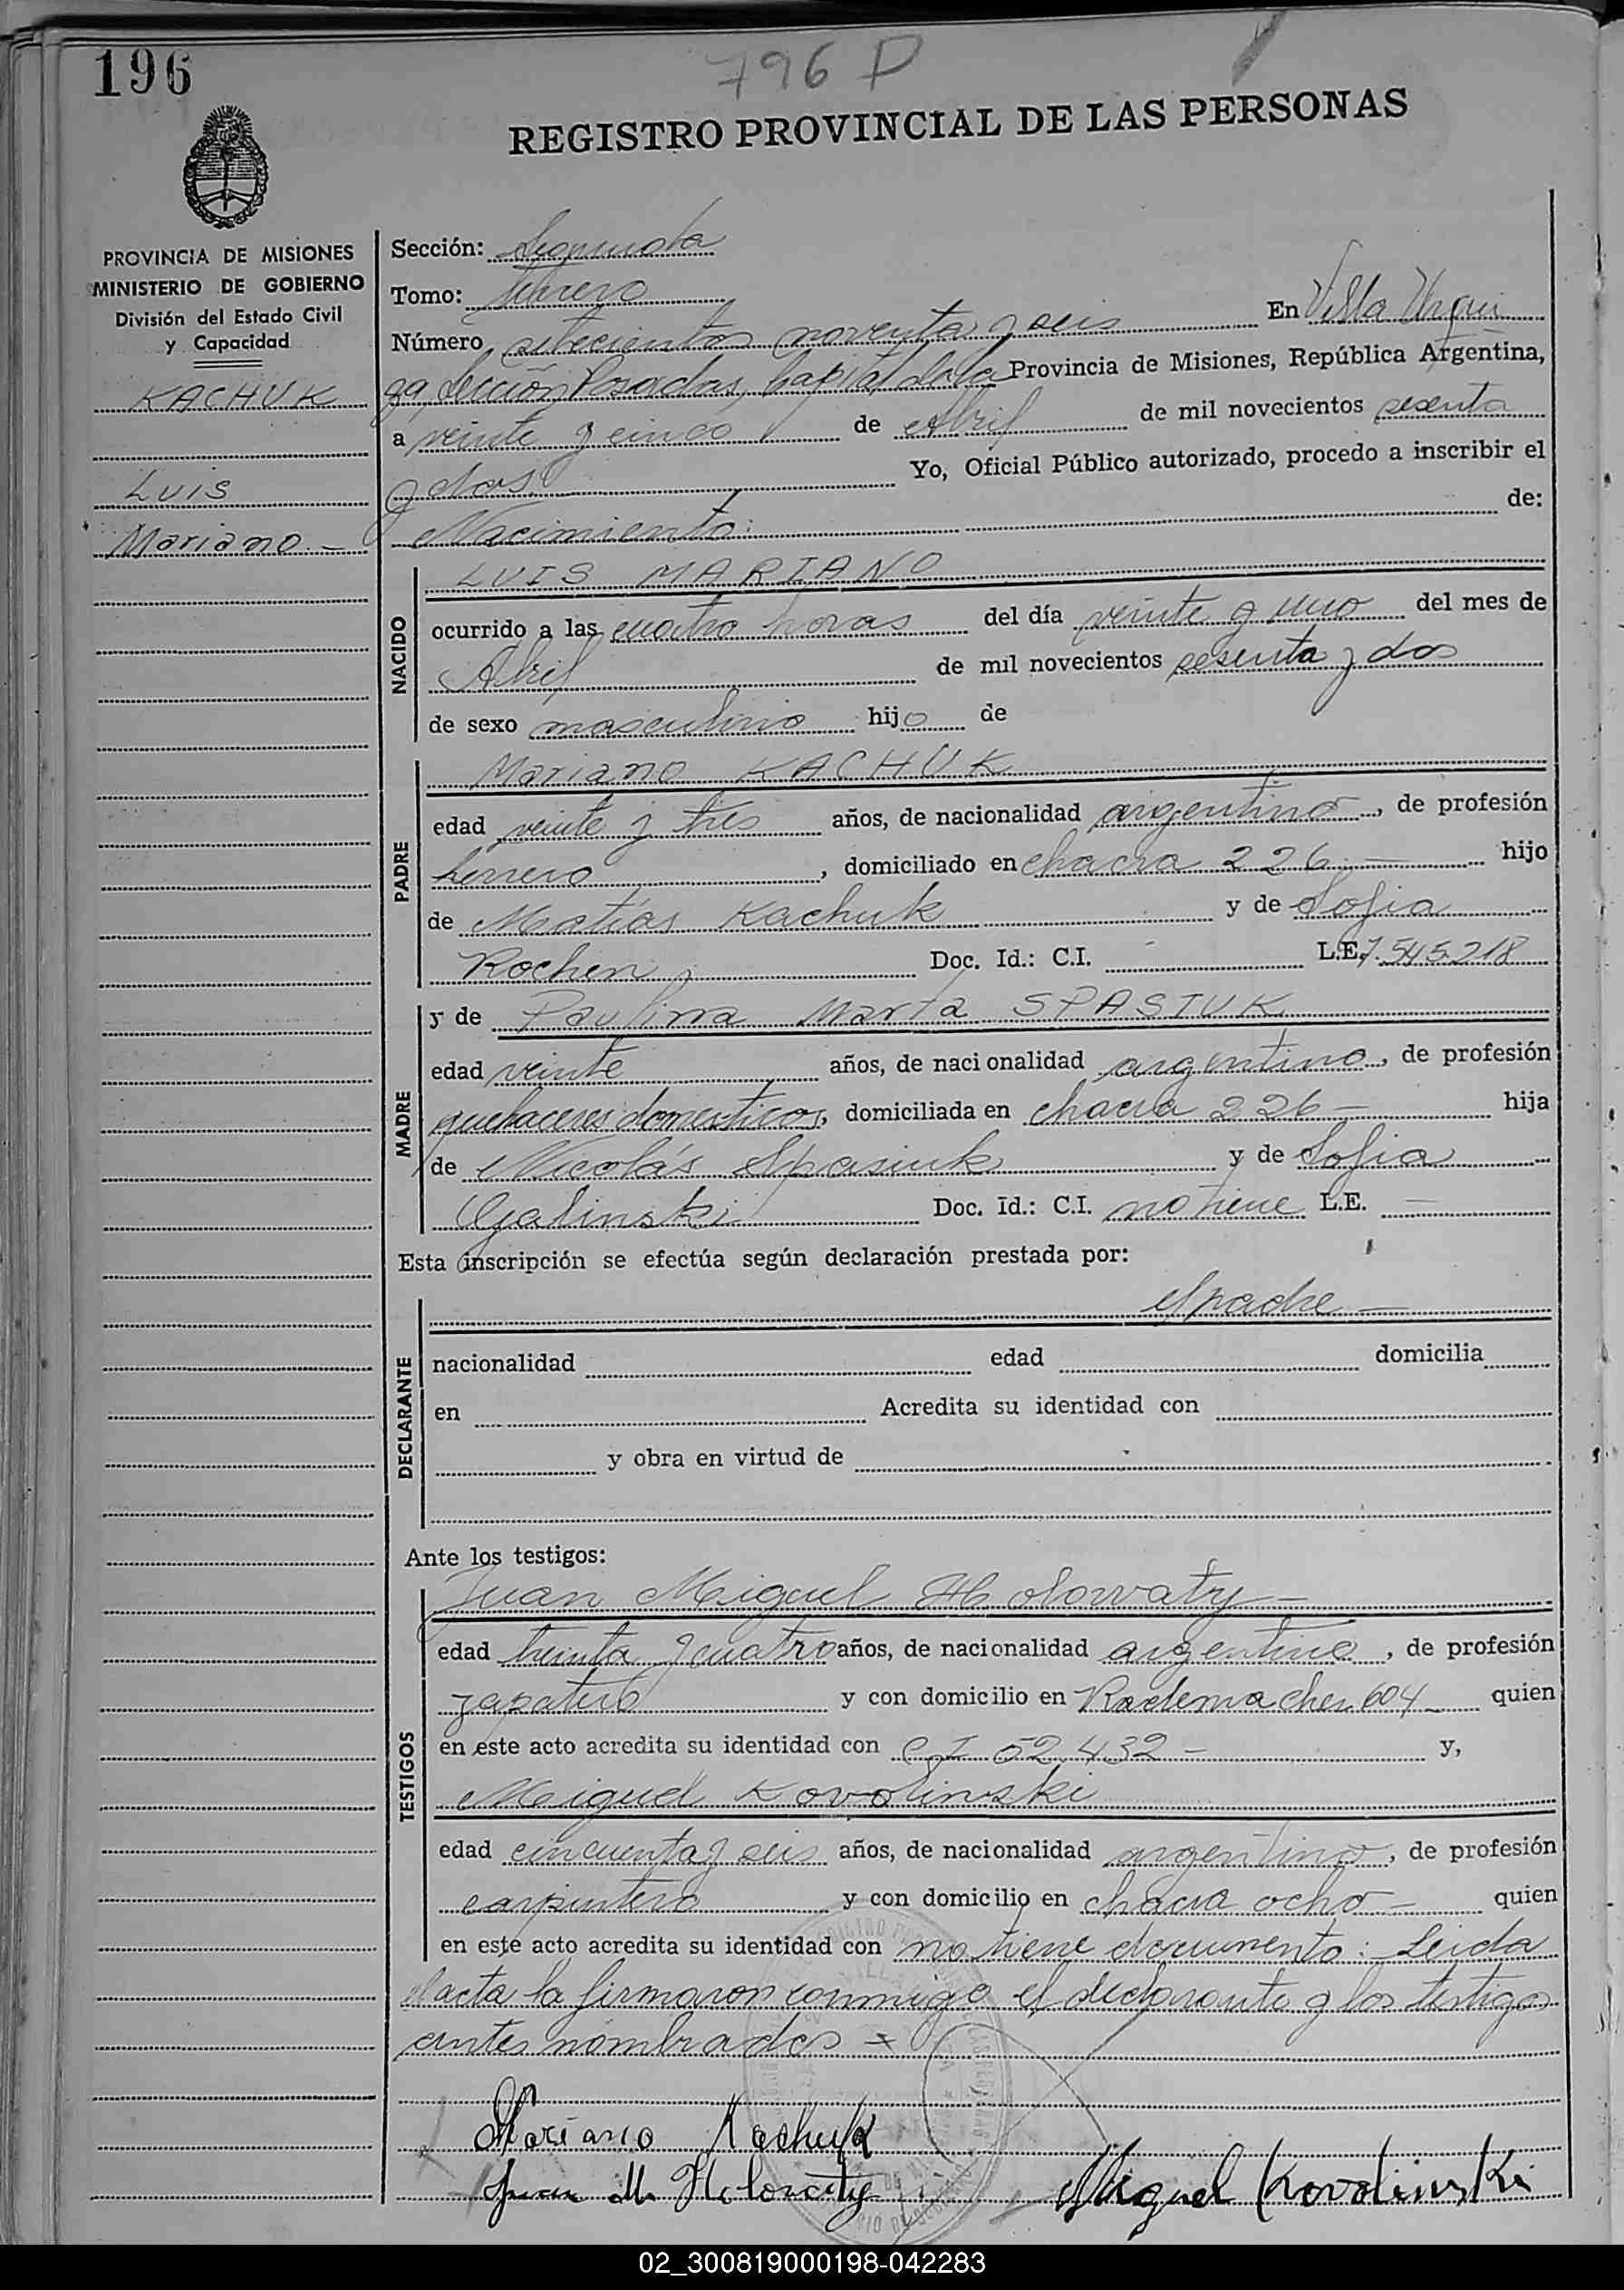 196
796 D
REGISTRO PROVINCIAL DE LAS PERSONAS
PROVINCIA DE MISIONES
MINISTERIO DE GOBIERNO
División del Estado Civil
y Capacidad
KACHUK
Luis
Mariano.-
Sección: Segunda
Tomo: febrero
Número setecientos noventa y seis En Villa Urqui
za Sección Posadas, Capital de la Provincia de Misiones, República Argentina,
a veinte y cinco de Abril de mil novecientos sesenta
y dos Yo, Oficial Público autorizado, procedo a inscribir el
Nacimiento: de:
NACIDO
LUIS MARIANO
ocurrido a las cuatro horas del día veinte y uno del mes de
Abril de mil novecientos sesenta y dos
de sexo masculino hijo de
PADRE
Mariano KACHUK
edad veinte y tres años, de nacionalidad argentino, de profesión
herrero, domiciliado en chacra 226.- hijo
de Matías Kachuk y de Sofia
Rochen Doc. Id.: C.I. - L.E. 7.545.218
MADRE
y de Paulina Marta SPASIUK
edad veinte años, de nacionalidad argentina, de profesión
quehaceres domesticos, domiciliada en chacra 226 - hija
de Nicolás Spasiuk y de Sofia
Galinski Doc. Id.: C.I. no tiene L.E. -
Esta inscripción se efectúa según declaración prestada por:
DECLARANTE
el padre -
nacionalidad edad domicilia
en Acredita su identidad con
y obra en virtud de
Ante los testigos:
TESTIGOS
Juan Miguel Holowaty -
edad treinta y cuatro años, de nacionalidad argentino, de profesión
zapatero y con domicilio en Rademacher 604 - quien
en este acto acredita su identidad con C I 52.432 - y,
Miguel Kovolinski
edad cincuenta y seis años, de nacionalidad argentino, de profesión
carpintero y con domicilio en chacra ocho - quien
en este acto acredita su identidad con no tiene documento: Leida
el acta la firmaron conmigo el declarante y los testigos
antes nombrados =
Mariano Kachuk
Juan M. Holowaty Miguel Kovolinski
02_300819000198-042283